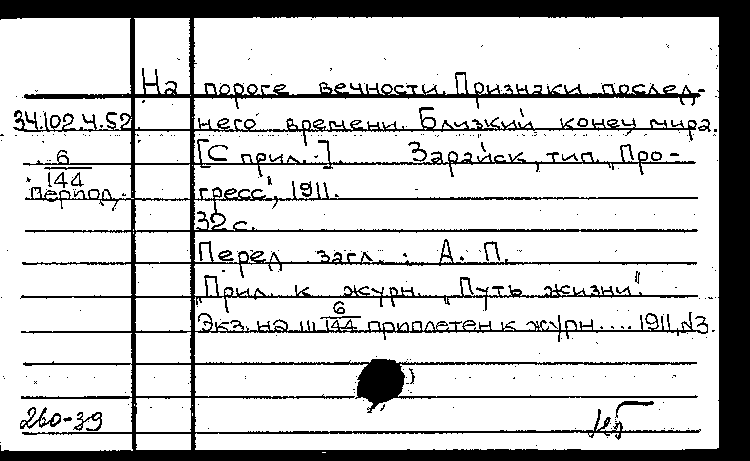 На пороге вечности. Признаки послед-
34.102.4.52 него времени. Близкий конец мира.
6/144 [С прил. ]. Зарайск, тип. „Про-
период. гресс", 1911.
32 с.
Перед загл.: А. П.
„Прил. к журн. „Путь жизни".
Экз. на Ш 6/144 приплетен к журн. ... 1911, №3.
260-39